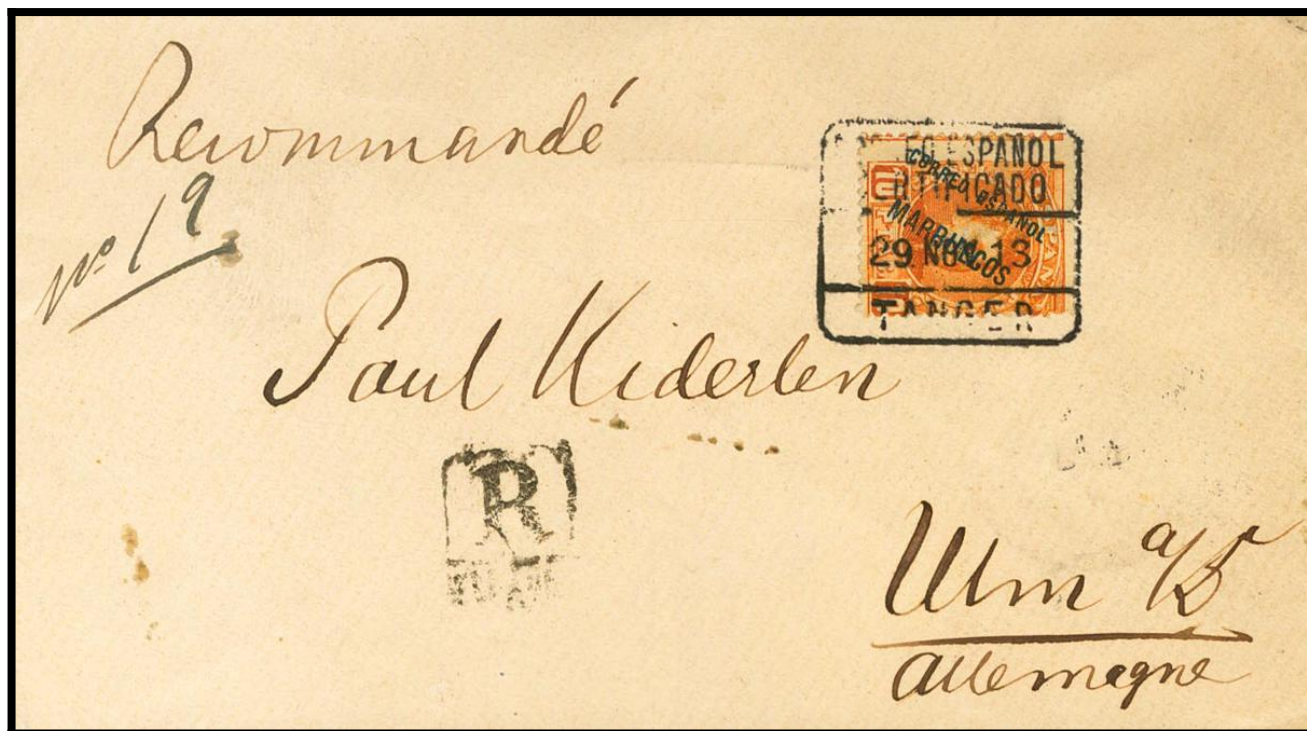 Recommandé
Nº 19
ESPAÑOL
CADO
CORREO ESPAÑOL
MARRUECOS
29 NOV 13
TANGER
Paul Kiderlen
R
Ulm a/D
Allemagne